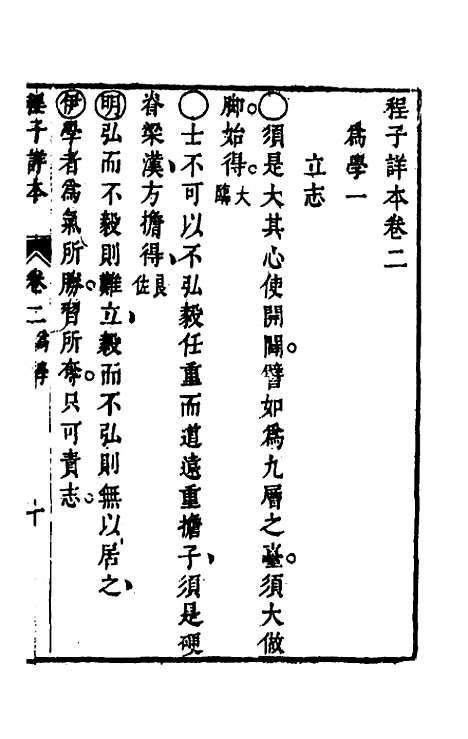 程子詳本卷二
爲學一
立志
○須是大其心使開闊。譬如爲九層之臺。須大做
脚。始得。大臨
○士不可以不弘毅任重而道遠重擔子、須是硬
脊梁漢、方擔得、良佐
明弘而不毅則難立毅而不弘則無以居之、
伊學者爲氣所勝。習所奪。只可責志。
程子詳本 卷二 爲學 十